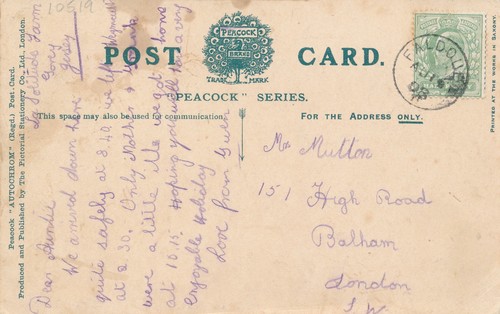 10519
POST CARD.
PEACOCK
BRAND
TRADE MARK
"PEACOCK" SERIES.
This space may also be used for communication.
FOR THE ADDRESS ONLY.
PRINTED AT THE WORKS IN SAXONY.
Peacock "AUTOCHROM" (Regd.) Post Card.
Produced and Published by The Pictorial Stationery Co., Ltd., London.
La Solitude Farm
Gorey
Jersey
Dear Auntie
We arrived down here
quite safely at 8.40 we left
at 2.30. Only Mother &
were a little We got home
at 10.15. Hoping you will have a very
enjoyable Holiday
Love from Gwen
Mrs Mutton
151 High Road
Balham
London
S.W.